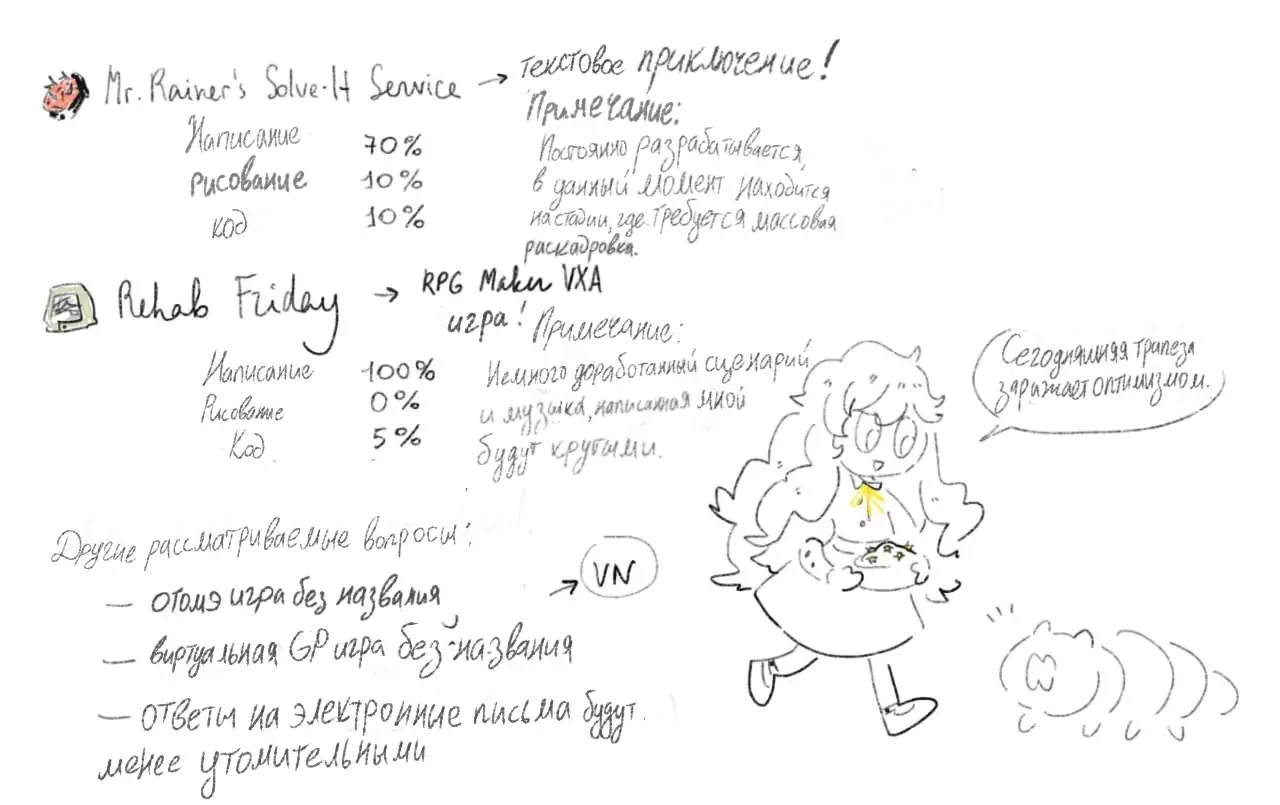 Mr. Rainer's Solve-It Service → текстовое приключение!
Примечание:
Написание 70%
рисование 10%
код 10%
Постоянно разрабатывается,
в данный момент находится
на стадии, где требуется массовая
раскадровка.
Rehab Friday → RPG Maker VXA
игра!
Примечание:
Написание 100%
Рисование 0%
Код 5%
Немного доработанный сценарий
и музыка, написанная мной
будут крутыми.
Сегодняшняя трапеза
заражает оптимизмом.
Другие рассматриваемые вопросы:
— отомэ игра без названия → VN
— виртуальная GP игра без названия
— ответы на электронные письма будут
менее утомительными